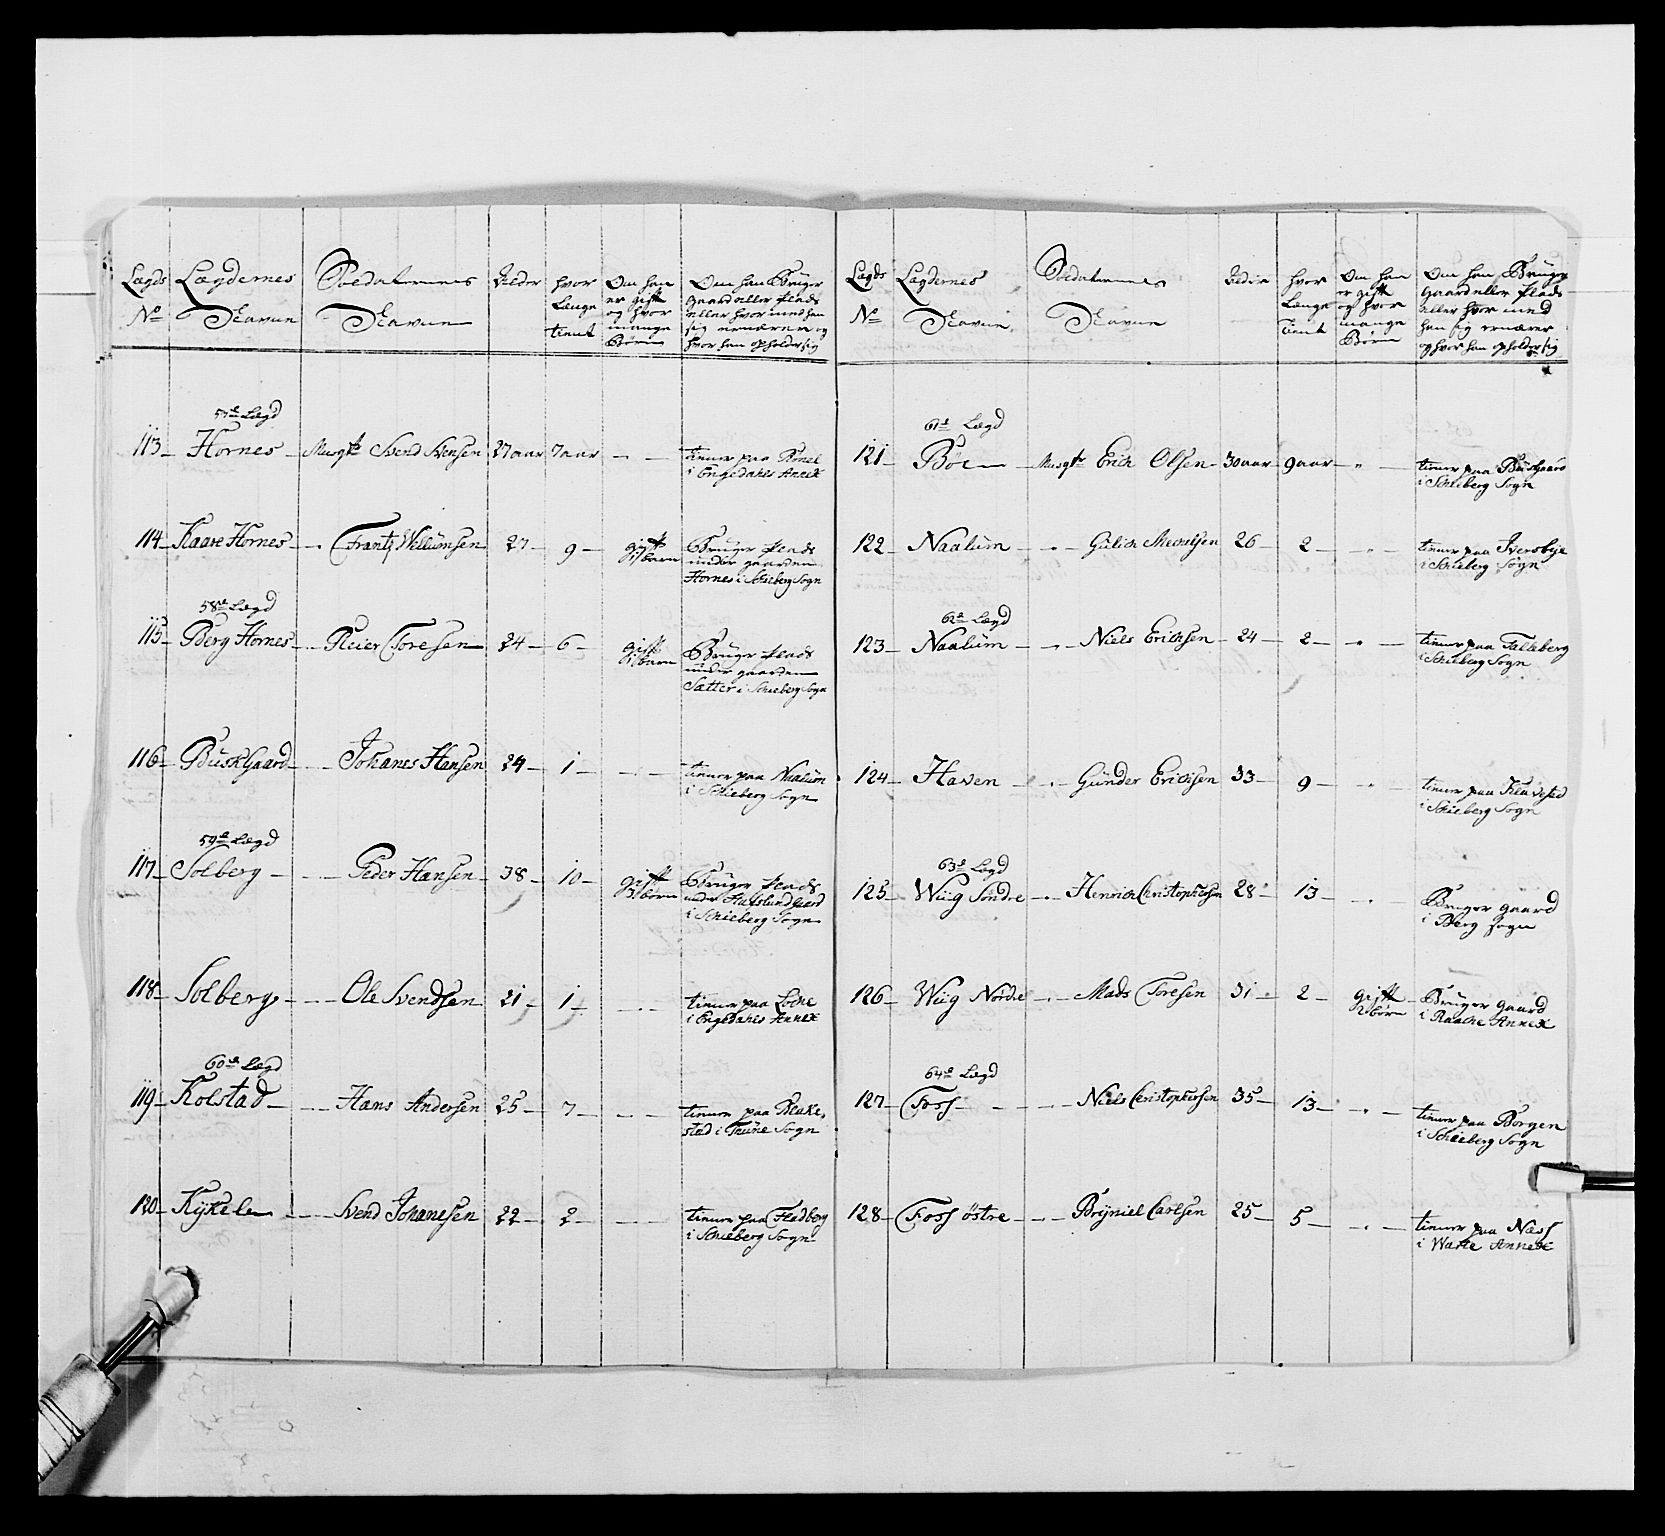 Lægds
No
Lægdernes
Navne
Soldaternes
Navne
Alder
hvor
Længe
tient
Om han
er gift
og hvor
mange
Børn
Om han Bruger
gaard eller Plads
eller hvor med han
sig ernærer og
hvor han opholder sig
57de Lægd
113 Hornes Musqtr Svend Svensen 27 aar 7 aar
tiener paa
i Engedahls Annex
114 Kaare Hornes Frantz Wellumsen 27 9 gift 1 barn
Bruger Plads
under gaarden
Hornes i Schieberg Sogn
58de Lægd
115 Berg Hornes Reier Toresen 24 6 gift 1 barn
Bruger Plads
under gaarden
Sætter i Schieberg Sogn
116 Buskgaard Johanes Hansen 24 1
tiener paa Naalum
i Schieberg Sogn
59de Lægd
117 Solberg Peder Hansen 38 10 gift børn
Bruger Plads
under Hafslund gaard
i Schieberg Sogn
118 Solberg Ole Svendsen 21 1
tiener paa
i Engedahls Annex
60de Lægd
119 Kolstad Hans Andersen 25 7
tiener paa
stad i Tune Sogn
120 Kykelen Svend Johanesen 22 2
tiener paa
i Schieberg Sogn
Lægds
No
Lægdernes
Navne
Soldaternes
Navne
Alder
hvor
Længe
tient
Om han
er gift
og hvor
mange
Børn
Om han Bruger
Gaard eller Plads
eller hvor med
han sig ernærer
og hvor han opholder sig
61de Lægd
121 Böe Musqtr Erich Olsen 30 aar 9 aar
tiener paa Buskgaard
i Schieberg Sogn
122 Naalum Gulich Michelsen 26 2
tiener paa Iversbye
i Schieberg Sogn
62de Lægd
123 Naalum Niels Erichsen 24 2
tiener paa Falkeberg
i Schieberg Sogn
124 Haven Gunder Erichsen 33 9
tiener paa Klavestad
i Schieberg Sogn
63de Lægd
125 Wiig Söndre Henrich Christophersen 28 13
Bruger gaard
i Berg sogn
126 Wiig Nordre Mads Toresen 31 2 gift 2 børn
Bruger gaard
i Raade Annex
64de Lægd
127 Foss Niels Christophersen 35 13
tiener paa Borgen
i Schieberg Sogn
128 Foss østre Bryniel Carlsen 25 5
tiener paa Næss
i Annex